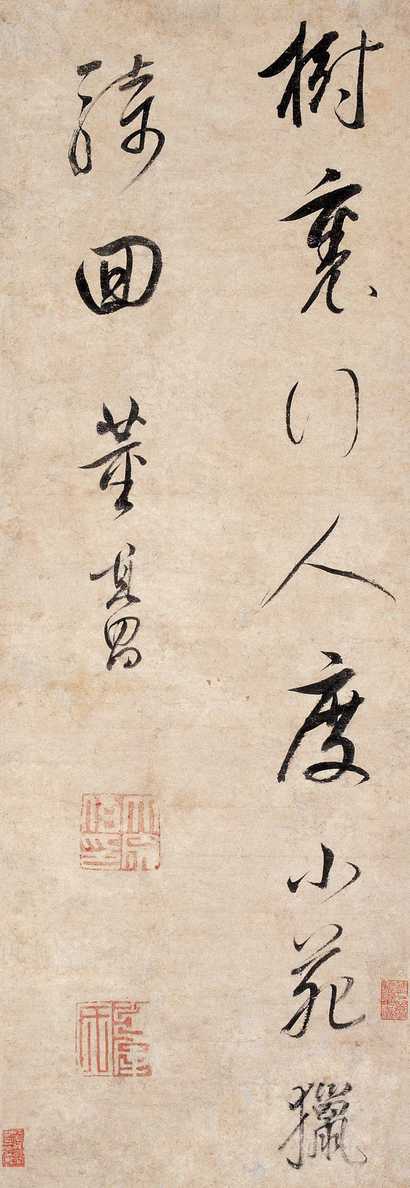 樹裏行人度小苑獵
騎回 董其昌